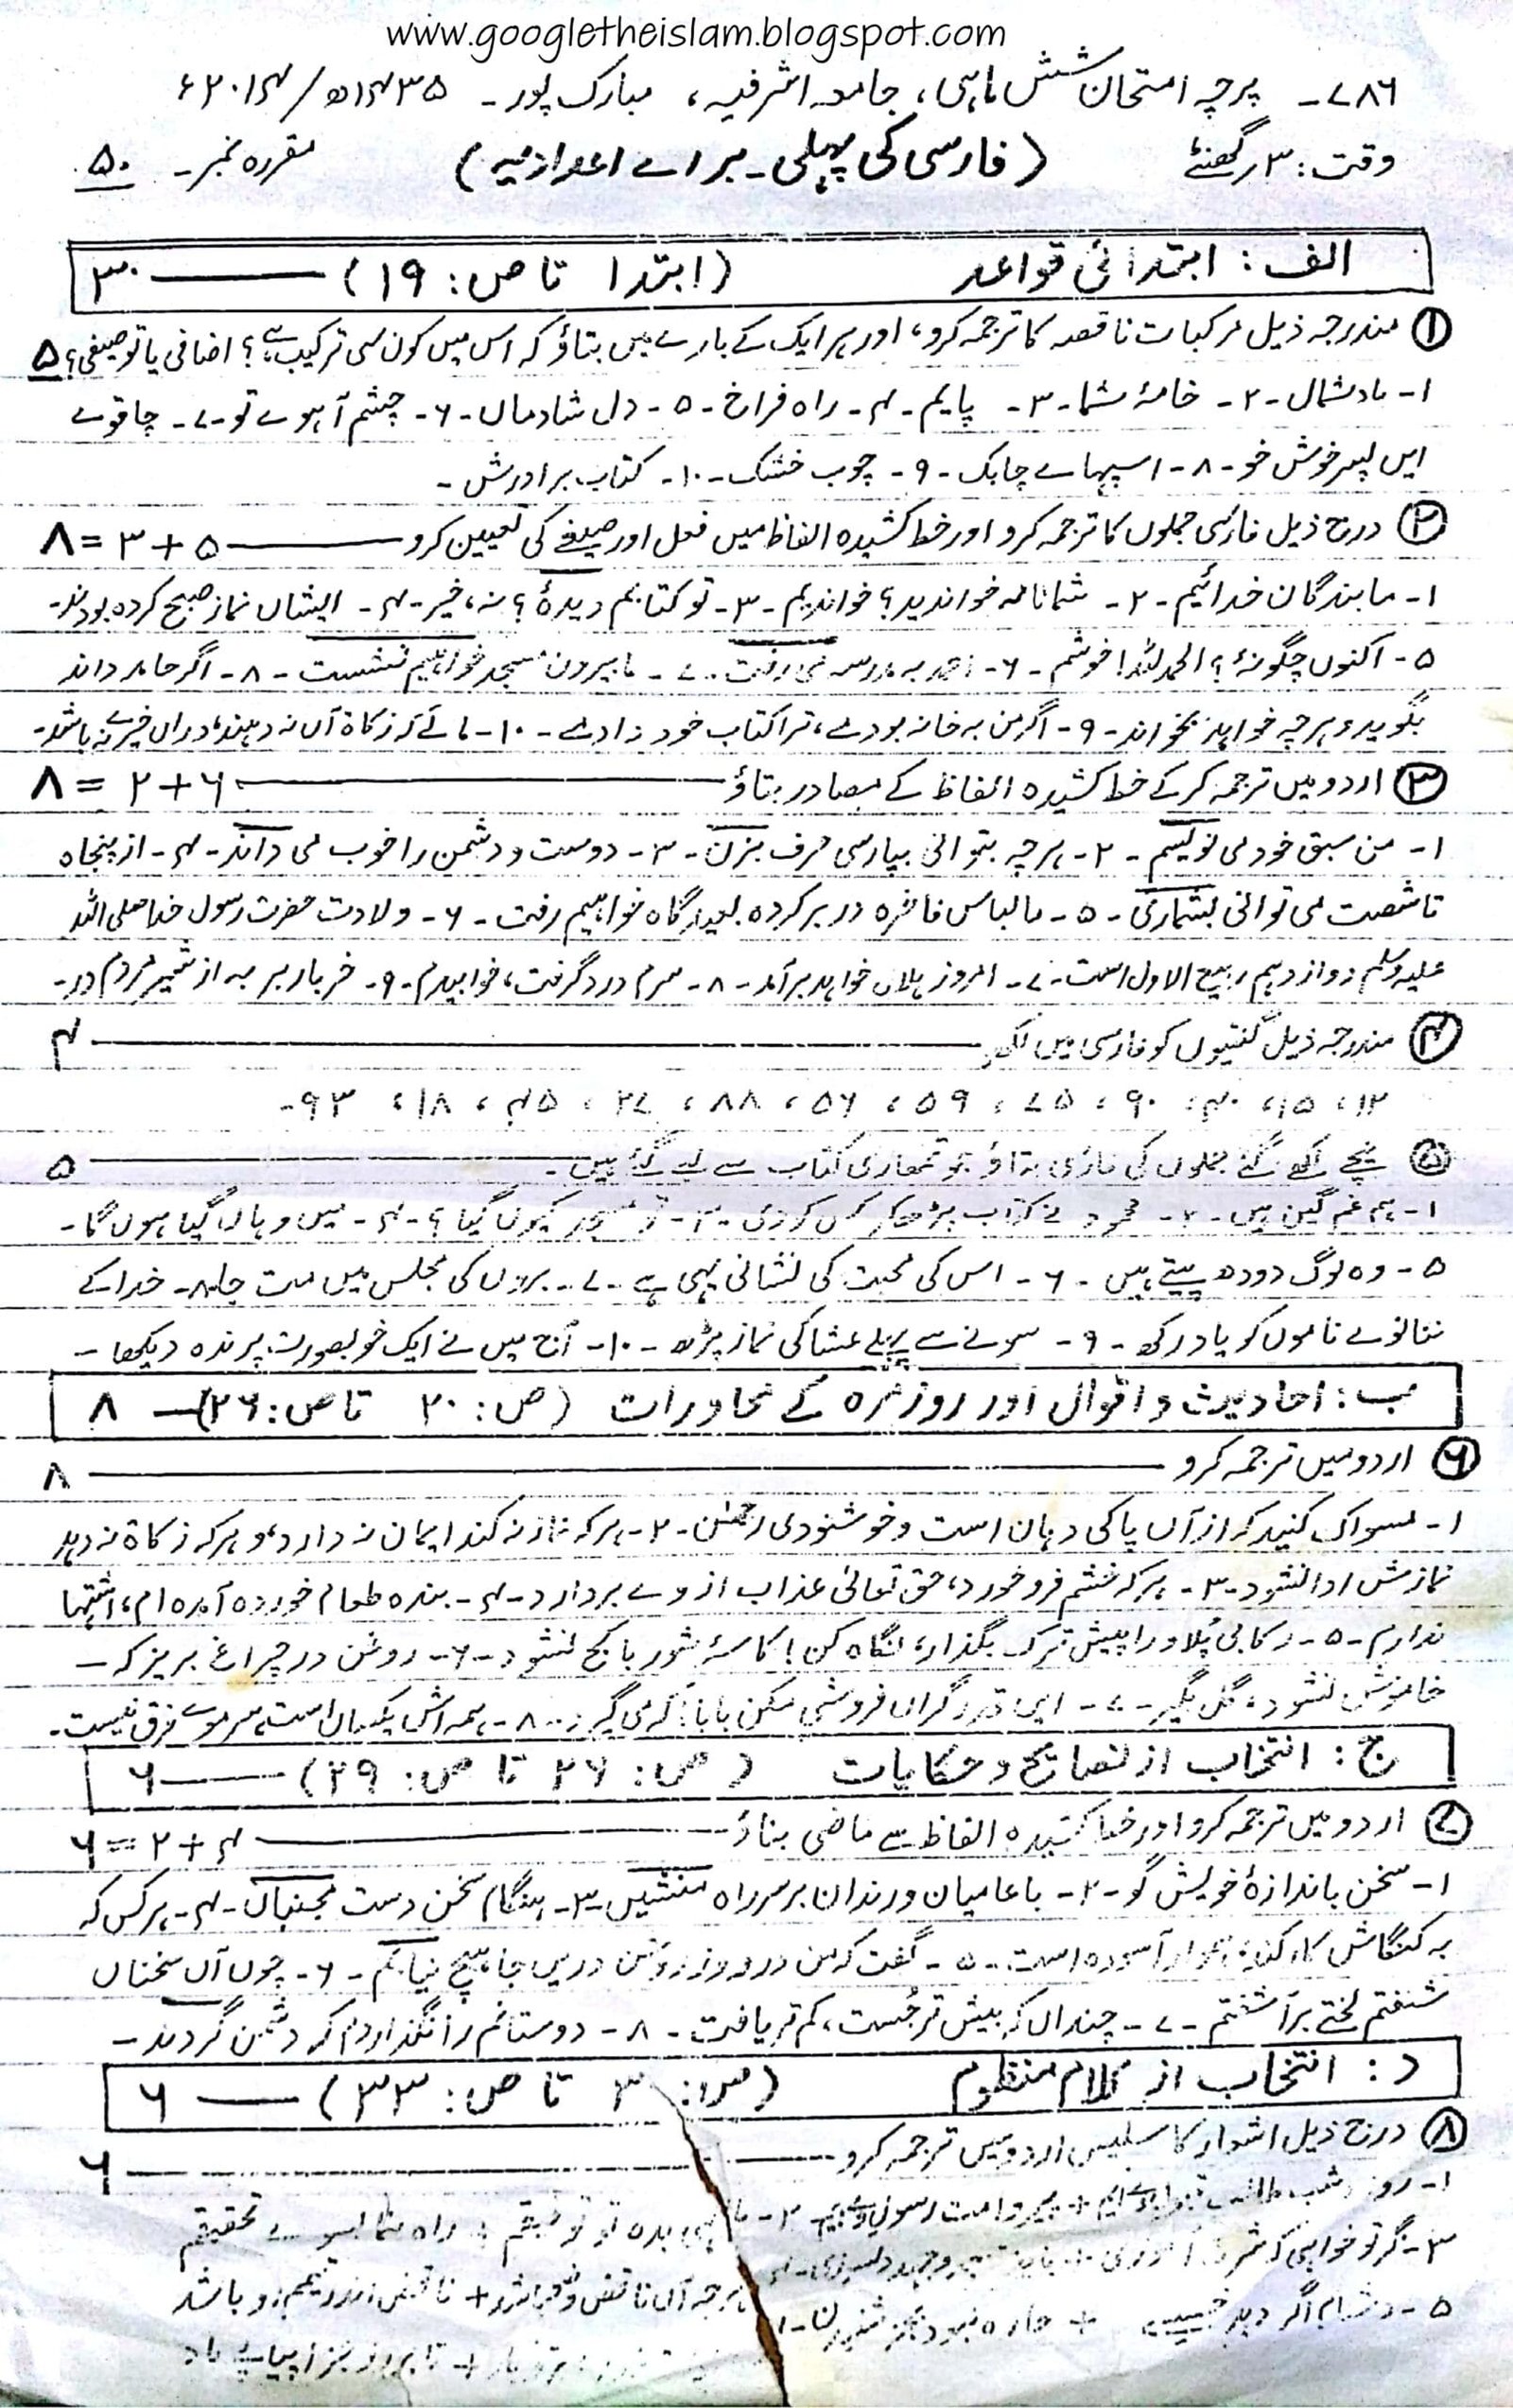 www.googletheislam.blogspot.com
۷۸۶۔ پرچہ امتحان شش ماہی، جامعہ اشرفیہ، مبارک پور۔ ۱۴۳۵ھ/۲۰۱۴ء
وقت: ۳ر گھنٹے (فارسی کی پہلی۔ براے اعدادیہ) مقررہ نمبر۔ ۵۰
الف: ابتدائی قواعد (ابتدا تا ص: ۱۹) —— ۳۰
① مندرجہ ذیل مرکبات ناقصہ کا ترجمہ کرو، اور ہر ایک کے بارے میں بتاؤ کہ اس میں کون سی ترکیب ہے؟ اضافی یا توصیفی؟ ۵
۱- باد شمال ۔۲- خامۂ شما ۔۳- پایم ۔۴- راہ فراخ ۔۵- دل شادماں ۔۶- چشم آہوے تو ۔۷- چاقوے
ایں پسر خوش خو ۔۸- اسپہاے چابک ۔۹- چوب خشک ۔۱۰- کتاب برادرش ۔
② درج ذیل فارسی جملوں کا ترجمہ کرو اور خط کشیدہ الفاظ میں فعل اور صیغے کی تعیین کرو —— ۵+۳=۸
۱- ما بندگان خدائیم ۔۲- شما نامہ خواندید؟ خواندیم ۔۳- تو کتابم دیدۂ؟ نہ، خیر ۔۴- ایشاں نماز صبح کردہ بودند۔
۵- اکنوں چگونۂ؟ الحمد للہ! خوشم ۔۶- احمد بہ مدرسہ نمی رفت ۔۷- ما بیرون مسجد خواہیم نشست ۔۸- اگر حامد داند
بگوید، و ہرچہ خواہد بخواند ۔۹- اگر من بہ خانہ بودے، ترا کتاب خود دادے ۔۱۰- مالے کہ زکاۃ آں نہ دہند، دراں خیرے نہ باشد۔
③ اردو میں ترجمہ کر کے خط کشیدہ الفاظ کے مصادر بتاؤ —— ۶+۲=۸
۱- من سبق خود می نویسم ۔۲- ہرچہ بتوانی بپارسی حرف بزن ۔۳- دوست و دشمن را خوب می داند ۔۴- از پنجاہ
تا شصت می توانی بشماری ۔۵- ما لباس فاخرہ در بر کردہ بعیدگاہ خواہیم رفت ۔۶- ولادت حضرت رسول خدا صلی اللہ
علیہ وسلم دوازدہم ربیع الاول است ۔۷- امروز ہلال خواہد برآمد ۔۸- سرم درد گرفت، خوابیدم ۔۹- خر باربر بہ از شیر مردم در۔
④ مندرجہ ذیل گنتیوں کو فارسی میں لکھو —— ۴
۱۲، ۱۵، ۴۰، ۹۰، ۷۵، ۵۹، ۵۶، ۸۸، ۲۷، ۴۵، ۱۸، ۹۳-
⑤ نیچے لکھے گئے جملوں کی فارسی بتاؤ جو تمہاری کتاب سے لیے گئے ہیں ۔ —— ۵
۱- ہم غم گین ہیں ۔۲- محمود نے کتاب پڑھ کر کس کو دی ۔۳- تو مسجد کیوں گیا؟ ۔۴- میں وہاں گیا ہوں گا ۔
۵- وہ لوگ دودھ پیتے ہیں ۔۶- اس کی محبت کی نشانی یہی ہے ۔۷- بروں کی مجلس میں مت جا ۔۸- خدا کے
ننانوے ناموں کو یاد رکھ ۔۹- سونے سے پہلے عشا کی نماز پڑھ ۔۱۰- آج میں نے ایک خوبصورت پرندہ دیکھا ۔
ب: احادیث و اقوال اور روزمرہ کے محاورات (ص: ۲۰ تا ص: ۲۶) — ۸
⑥ اردو میں ترجمہ کرو —— ۸
۱- مسواک کنید کہ از آں پاکی دہان است و خوشنودی رحمٰن ۔۲- ہر کہ نماز نہ کند ایمان نہ دارد، و ہر کہ زکاۃ نہ دہد
نمازش ادا نشود ۔۳- ہر کہ خشم فرو خورد، حق تعالیٰ عذاب از وے بردارد ۔۴- بندہ طعام خوردہ آمدہ ام، اشتہا
ندارم ۔۵- رکابی پُلاو را پیش ترک بگذار، نگاہ کن! کاسۂ شوربا کج نشود ۔۶- روغن در چراغ بریز کہ ۔
خاموش نشود، گل بگیر ۔۷- ایں قدر گراں فروشی مکن بابا! کہ می گیرد ۔۸- ہمہ اش یکساں است، سر موے فرق نیست۔
ج: انتخاب از نصائح و حکایات (ص: ۲۶ تا ص: ۲۹) —— ۶
⑦ اردو میں ترجمہ کرو اور خط کشیدہ الفاظ سے ماضی بناؤ —— ۴+۲=۶
۱- سخن باندازۂ خویش گو ۔۲- با عامیان و رندان بر سر راہ منشیں ۔۳- ہنگام سخن دست مجنباں ۔۴- ہر کس کہ
بہ کنگاش کار کند، ہموار آسودہ است ۔۵- گفت کہ من در روز روشن دریں جا ہیچ نیابم ۔۶- چوں آں سخناں
شنفتم لختے برآشفتم ۔۷- چنداں کہ بیش تر جُست، کم تر یافت ۔۸- دوستانم را نگذاردم کہ دشمن گردند ۔
د: انتخاب از کلام منظوم (ص: ۳۰ تا ص: ۳۳) — ۶
⑧ درج ذیل اشعار کا سلیس اردو میں ترجمہ کرو —— ۶
۱- روز و شب طالب + پیرو امت رسول ۔۲- بدہ تو توفیقم + راہ نما بسوے تحقیقم
۳- گر تو خواہی کہ
۵- دشنام اگر دہد خسیسے + چارہ نبود بجز شنیدن